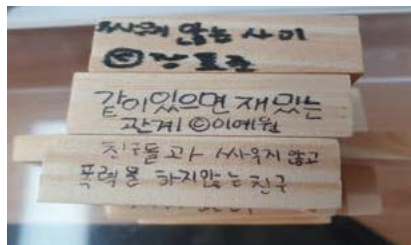 싸우지 않는 사이
ⓒ장
같이있으면 재밌는
관계 ⓒ이예원
친구들과 싸우지 않고
폭력을 하지않는 친구